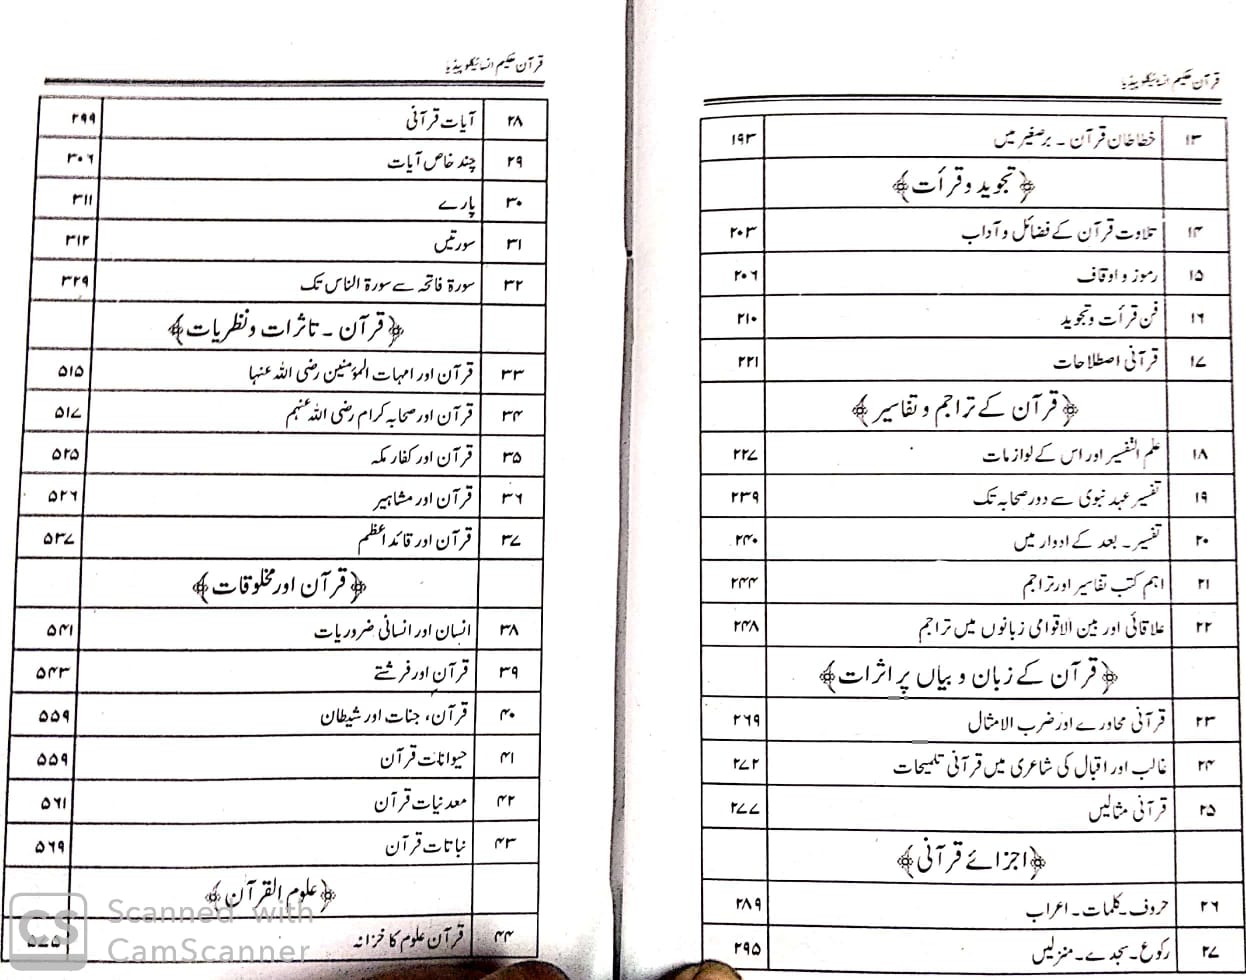 قرآن حکیم انسائیکلوپیڈیا
۱۳ خطاطان قرآن ۔ برصغیر میں ۱۹۳
﴿تجوید و قرأت﴾
۱۴ تلاوت قرآن کے فضائل و آداب ۲۰۳
۱۵ رموز و اوقاف ۲۰۶
۱۶ فن قرأت و تجوید ۲۱۰
۱۷ قرآنی اصطلاحات ۲۲۱
﴿قرآن کے تراجم و تفاسیر﴾
۱۸ علم التفسیر اور اس کے لوازمات ۲۲۷
۱۹ تفسیر عہد نبوی سے دور صحابہ تک ۲۳۹
۲۰ تفسیر ۔ بعد کے ادوار میں ۲۴۰
۲۱ اہم کتب تفاسیر اور تراجم ۲۴۴
۲۲ علاقائی اور بین الاقوامی زبانوں میں تراجم ۲۴۸
﴿قرآن کے زبان و بیاں پر اثرات﴾
۲۳ قرآنی محاورے اور ضرب الامثال ۲۶۹
۲۴ غالب اور اقبال کی شاعری میں قرآنی تلمیحات ۲۷۲
۲۵ قرآنی مثالیں ۲۷۷
﴿اجزائے قرآنی﴾
۲۶ حروف ۔ کلمات ۔ اعراب ۲۸۹
۲۷ رکوع ۔ سجدے ۔ منزلیں ۲۹۵
قرآن حکیم انسائیکلوپیڈیا
۲۸ آیات قرآنی ۲۹۹
۲۹ چند خاص آیات ۳۰۶
۳۰ پارے ۳۱۱
۳۱ سورتیں ۳۱۲
۳۲ سورۃ فاتحہ سے سورۃ الناس تک ۳۲۹
﴿قرآن ۔ تاثرات و نظریات﴾
۳۳ قرآن اور امہات المؤمنین رضی اللہ عنہا ۵۱۵
۳۴ قرآن اور صحابہ کرام رضی اللہ عنہم ۵۱۷
۳۵ قرآن اور کفار مکہ ۵۲۵
۳۶ قرآن اور مشاہیر ۵۲۶
۳۷ قرآن اور قائد اعظم ۵۳۷
﴿قرآن اور مخلوقات﴾
۳۸ انسان اور انسانی ضروریات ۵۴۱
۳۹ قرآن اور فرشتے ۵۴۳
۴۰ قرآن، جنات اور شیطان ۵۵۹
۴۱ حیوانات قرآن ۵۵۹
۴۲ معدنیات قرآن ۵۶۱
۴۳ نباتات قرآن ۵۶۹
﴿علوم القرآن﴾
۴۴ قرآن علوم کا خزانہ
CS Scanned with
CamScanner